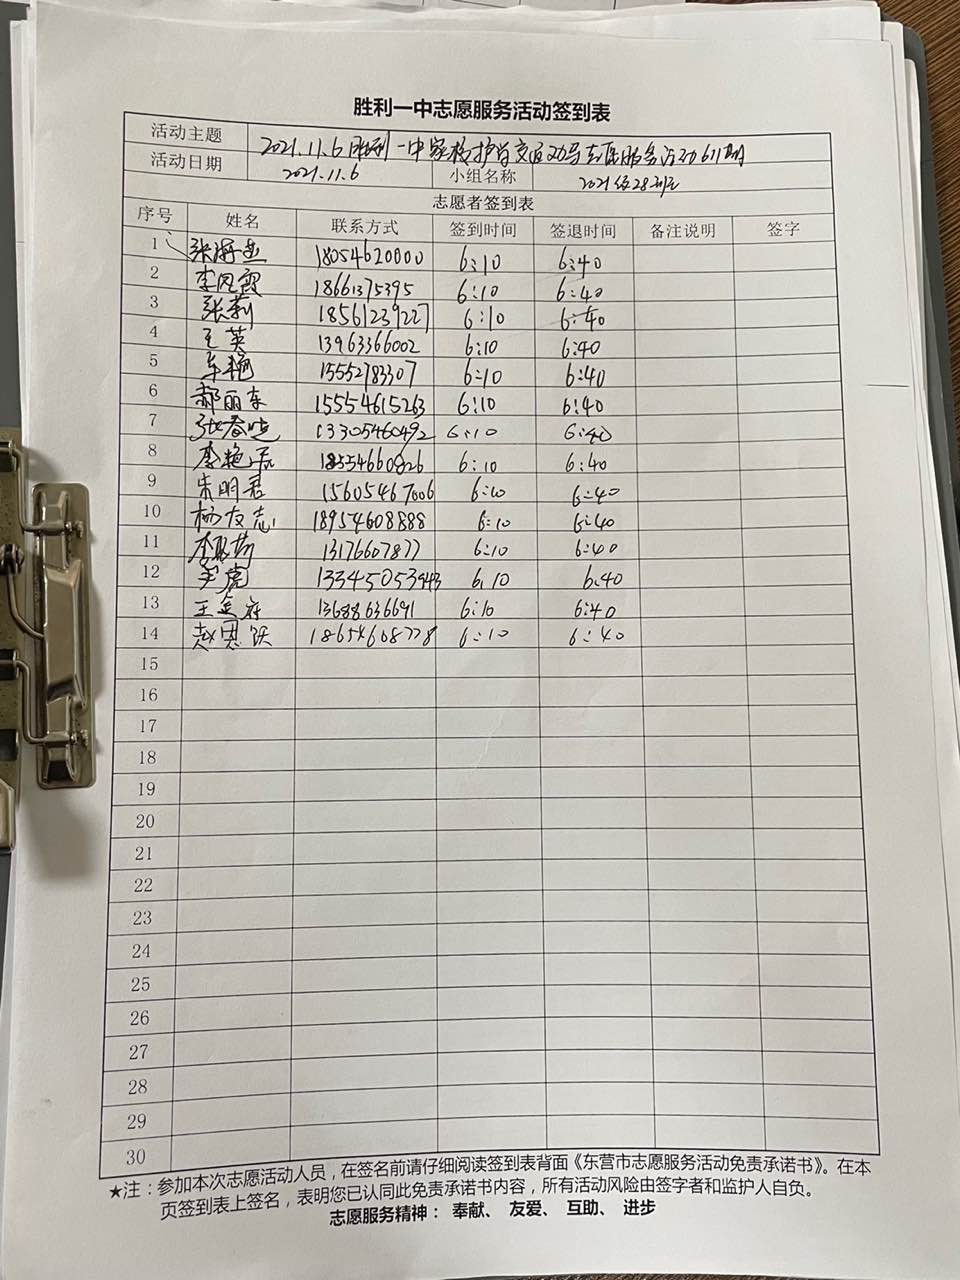 胜利一中志愿服务活动签到表
活动主题 2021.11.6胜利一中家校护学交通劝导志愿服务活动611期
活动日期 2021.11.6 小组名称 2021级28班
志愿者签到表
序号 姓名 联系方式 签到时间 签退时间 备注说明 签字
1 18054620000 6:10 6:40
2 李凤霞 18661375395 6:10 6:40
3 张莉 18561239227 6:10 6:40
4 王英 13963366002 6:10 6:40
5 车艳 15552783307 6:10 6:40
6 郝丽东 15554615263 6:10 6:40
7 张春晓 13305460492 6:10 6:40
8 李艳 18554660826 6:10 6:40
9 朱明君 15605467006 6:10 6:40
10 杨友志 18954608888 6:10 6:40
11 李 13176607877 6:10 6:40
12 虎 13345053943 6:10 6:40
13 王 府 13688636691 6:10 6:40
14 赵恩跃 18654608778 6:10 6:40
15
16
17
18
19
20
21
22
23
24
25
26
27
28
29
30
★注：参加本次志愿活动人员，在签名前请仔细阅读签到表背面《东营市志愿服务活动免责承诺书》。在本
页签到表上签名，表明您已认同此免责承诺书内容，所有活动风险由签字者和监护人自负。
志愿服务精神： 奉献、 友爱、 互助、 进步